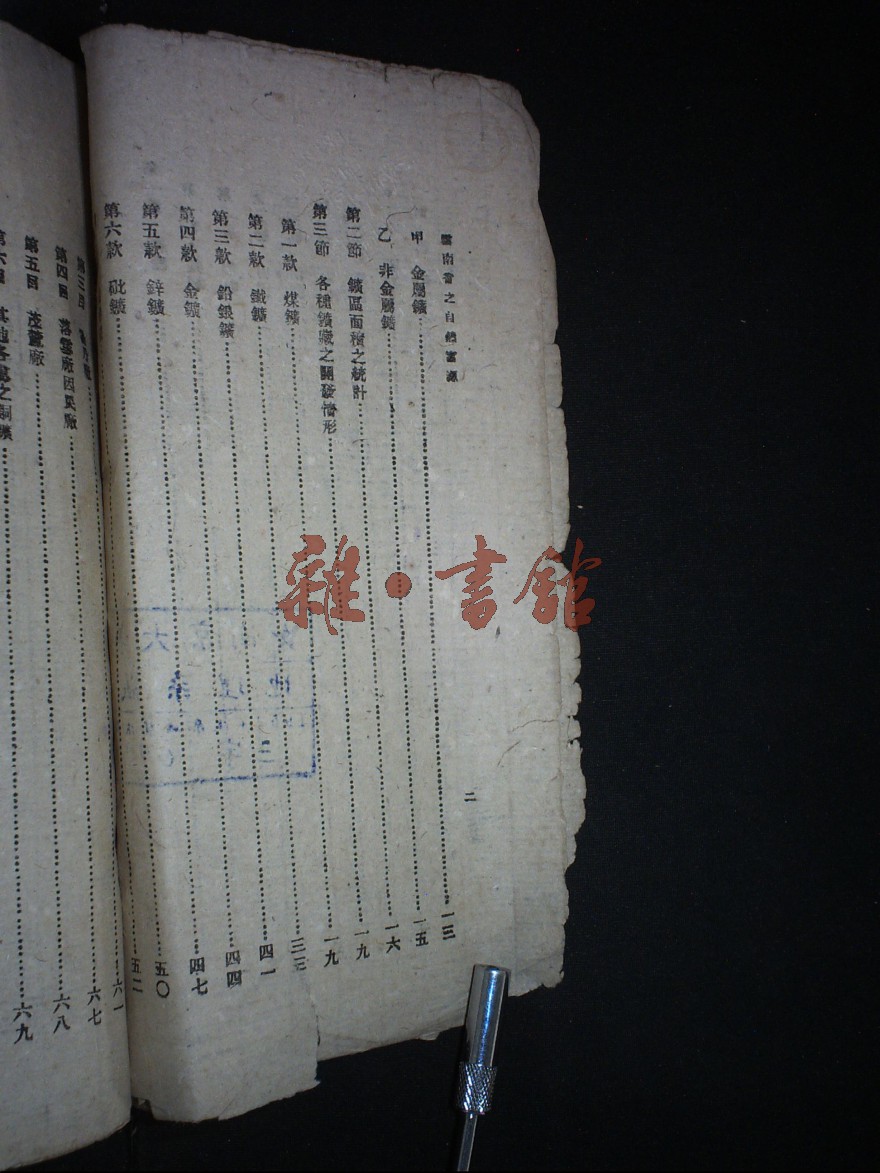 雲南省之自然富源 二
甲 金屬鑛……一三
乙 非金屬鑛……一五
第二節 鑛區面積之統計……一六
第三節 各種鑛藏之開發情形……一九
第一款 煤鑛……一九
第二款 鐵鑛……三三
第三款 鉛銀鑛……四一
第四款 金鑛……四四
第五款 鋅鑛……四七
第六款 砒鑛……五〇
……五二
第三……六一
第四……廠……六七
第五……廠……六八
其他各……之銅鑛……六九
雜·書館